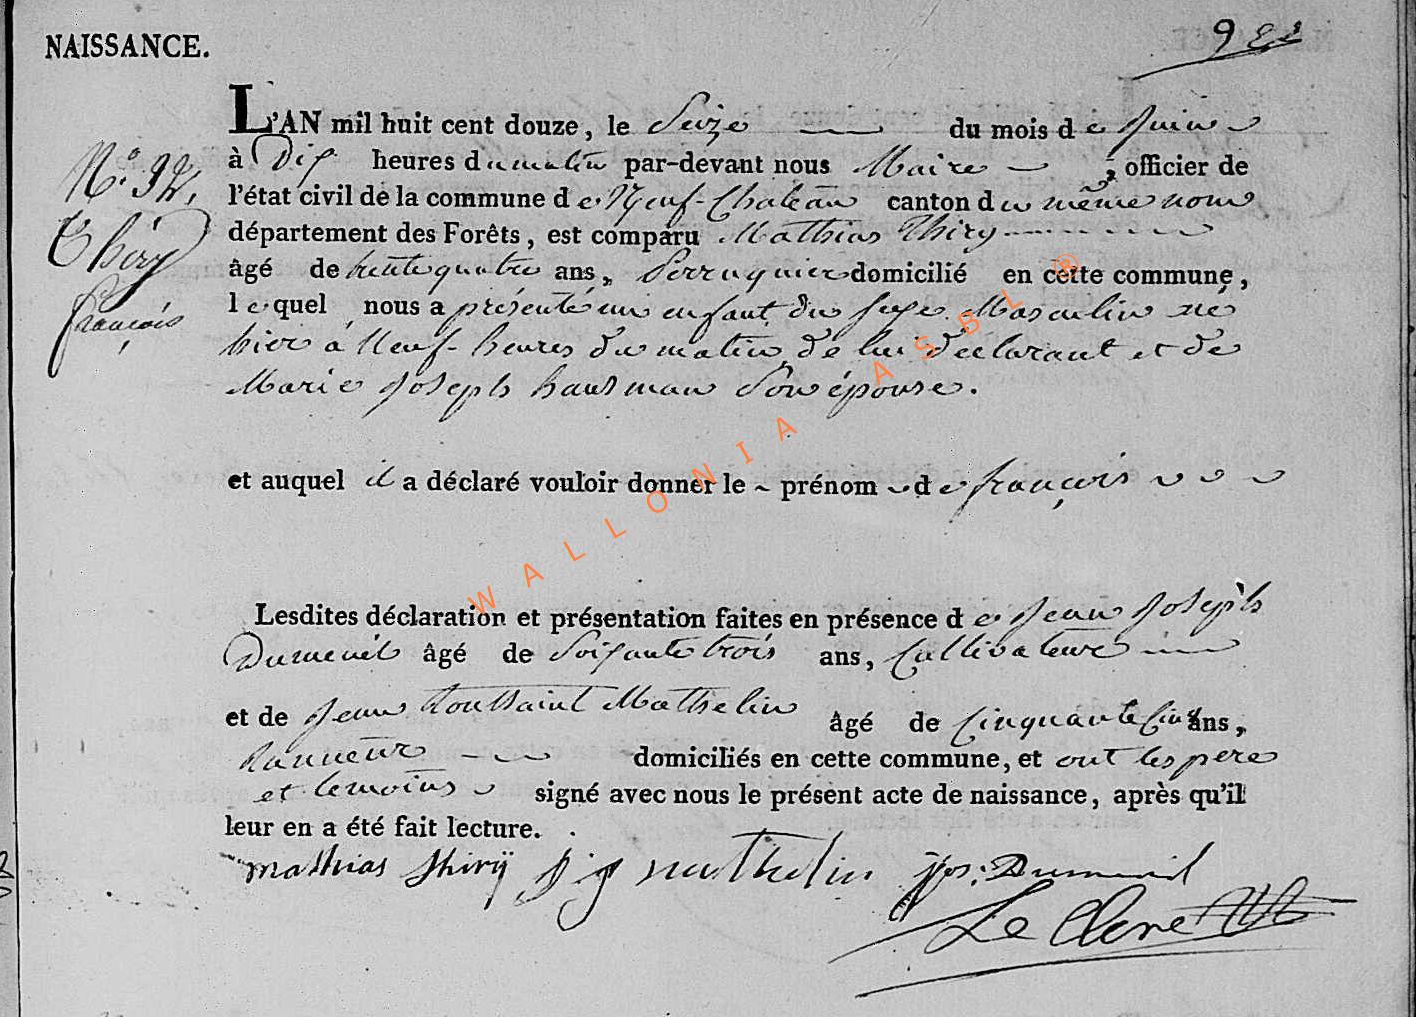 NAISSANCE.
L'AN mil huit cent douze, le Seize du mois de Juin
à Dix heures du matin par-devant nous Maire, officier de
l'état civil de la commune de Neuf-Chateau canton du même nom
département des Forêts, est comparu Mathias Thiry
âgé de trente quatre ans, Perruquier domicilié en cette commune,
lequel nous a présenté un enfant du sexe Masculin né
hier à Neuf heures du matin de lui déclarant et de
Marie Joseph hausman Son épouse.
et auquel il a déclaré vouloir donner le prénom de françois
Lesdites déclaration et présentation faites en présence de Jean Joseph
Dumenil âgé de Soixante trois ans, Cultivateur
et de Jean Toussaint Mathelin âgé de Cinquante Cinq ans,
tanneur domiciliés en cette commune, et ont les pere
et temoins signé avec nous le présent acte de naissance, après qu'il
leur en a été fait lecture.
mathias thiry mathelin jos: Dumenil
Le Clere
Thiry
françois
WALLONIA ASBL ®